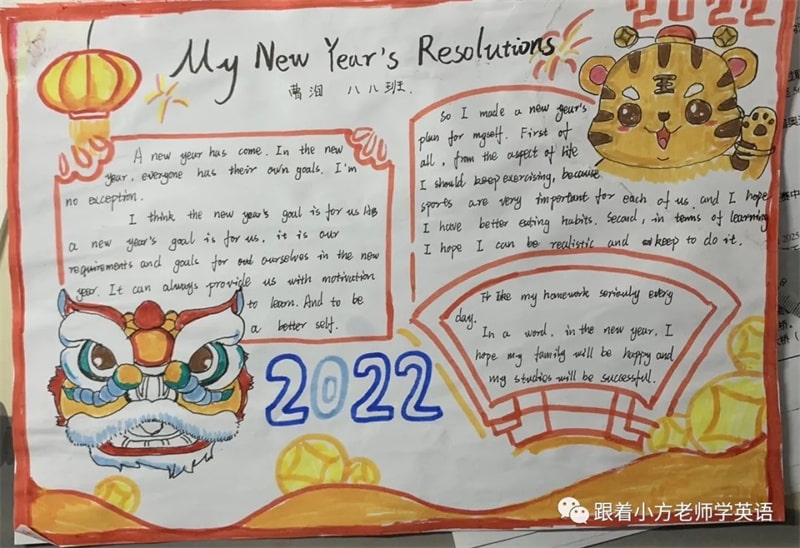 2022
My New Year's Resolutions
曹润 八八班.
A new year has come. In the new
year, everyone has their own goals. I'm
no exception.
I think the new year's goal is for us
a new year's goal is for us, it is our
requirements and goals for ourselves in the new
year. It can always provide us with motivation
to learn. And to be
a better self.
So I made a new year's
plan for myself. First of
all, from the aspect of life
I should keep exercising, because
sports are very important for each of us, and I hope
I have better eating habits. Second, in terms of learning
I hope I can be realistic and keep to do it.
It like my homework seriously every
day.
In a word, in the new year, I
hope my family will be happy and
my studies will be successful.
王
2022
跟着小方老师学英语